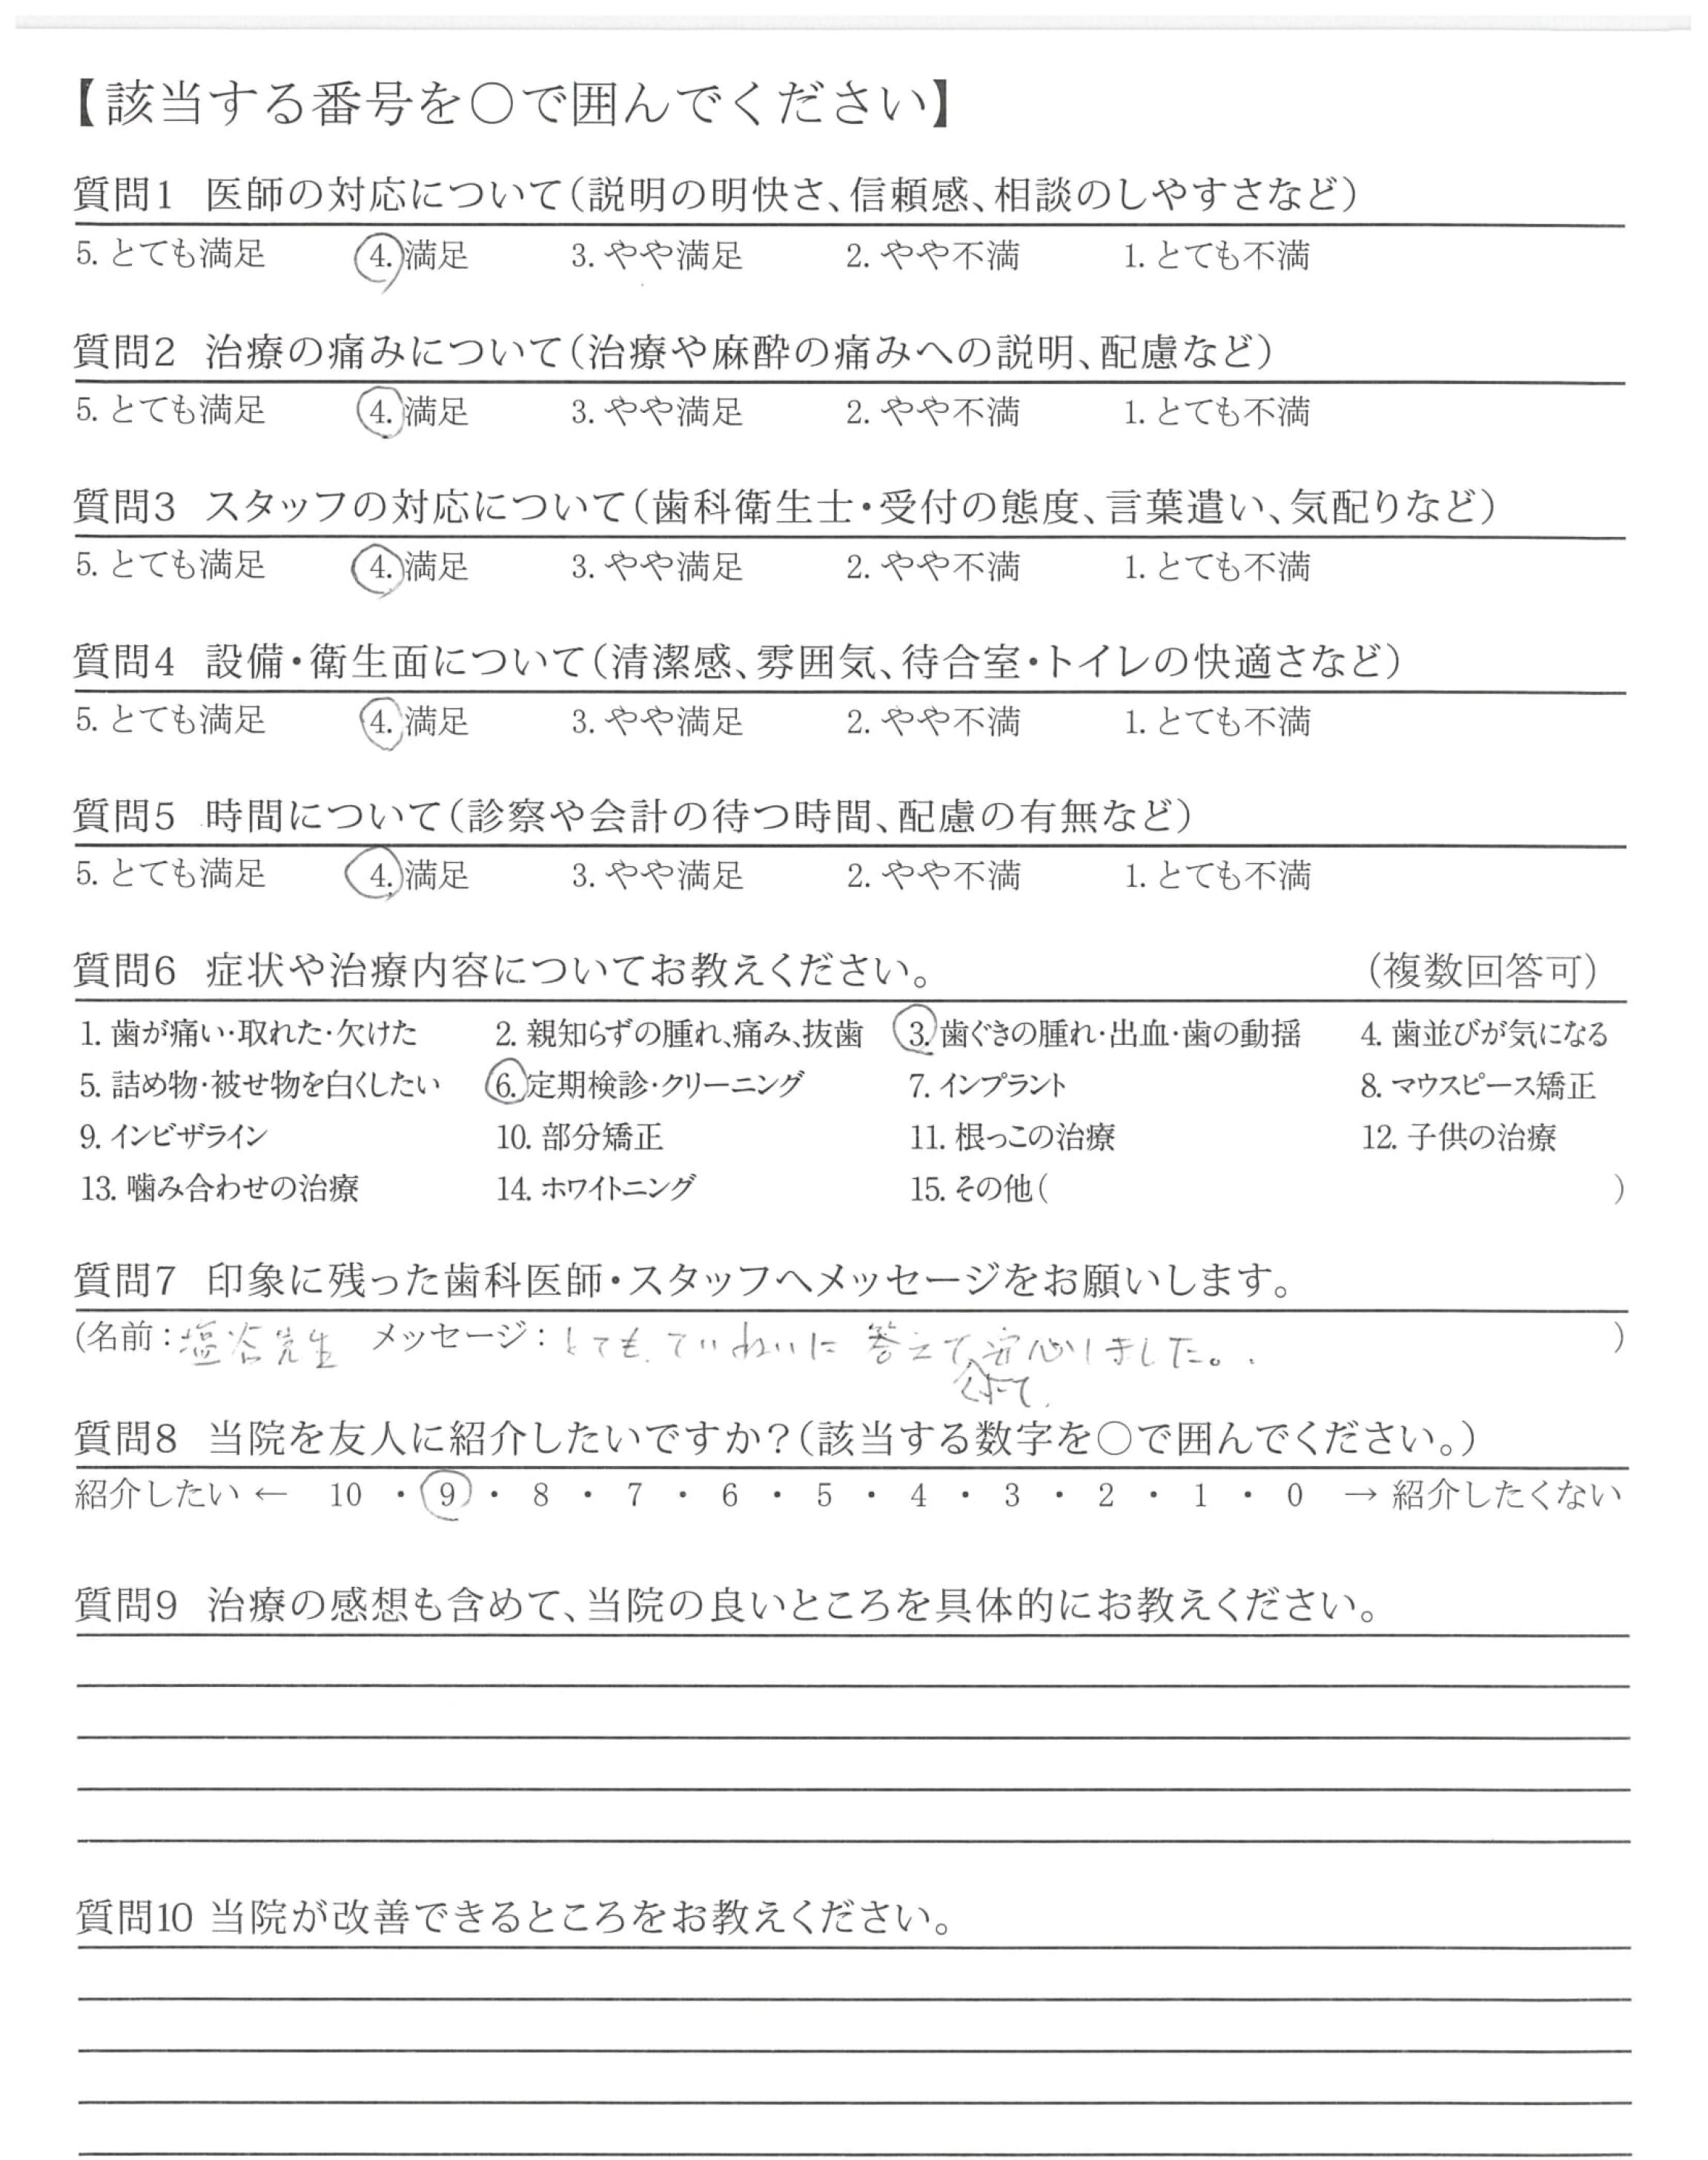 【該当する番号を○で囲んでください】
質問1 医師の対応について(説明の明快さ、信頼感、相談のしやすさなど)
5. とても満足 4. 満足 3. やや満足 2. やや不満 1. とても不満
質問2 治療の痛みについて(治療や麻酔の痛みへの説明、配慮など)
5. とても満足 4. 満足 3. やや満足 2. やや不満 1. とても不満
質問3 スタッフの対応について(歯科衛生士・受付の態度、言葉遣い、気配りなど)
5. とても満足 4. 満足 3. やや満足 2. やや不満 1. とても不満
質問4 設備・衛生面について(清潔感、雰囲気、待合室・トイレの快適さなど)
5. とても満足 4. 満足 3. やや満足 2. やや不満 1. とても不満
質問5 時間について(診察や会計の待つ時間、配慮の有無など)
5. とても満足 4. 満足 3. やや満足 2. やや不満 1. とても不満
質問6 症状や治療内容についてお教えください。 (複数回答可)
1. 歯が痛い・取れた・欠けた 2. 親知らずの腫れ、痛み、抜歯 3. 歯ぐきの腫れ・出血・歯の動揺 4. 歯並びが気になる
5. 詰め物・被せ物を白くしたい 6. 定期検診・クリーニング 7. インプラント 8. マウスピース矯正
9. インビザライン 10. 部分矯正 11. 根っこの治療 12. 子供の治療
13. 噛み合わせの治療 14. ホワイトニング 15. その他( )
質問7 印象に残った歯科医師・スタッフへメッセージをお願いします。
(名前:塩谷先生 メッセージ:とてもていねいに 答えて安心しました。 )
くれて
質問8 当院を友人に紹介したいですか?(該当する数字を○で囲んでください。)
紹介したい ← 10 ・ 9 ・ 8 ・ 7 ・ 6 ・ 5 ・ 4 ・ 3 ・ 2 ・ 1 ・ 0 → 紹介したくない
質問9 治療の感想も含めて、当院の良いところを具体的にお教えください。
質問10 当院が改善できるところをお教えください。